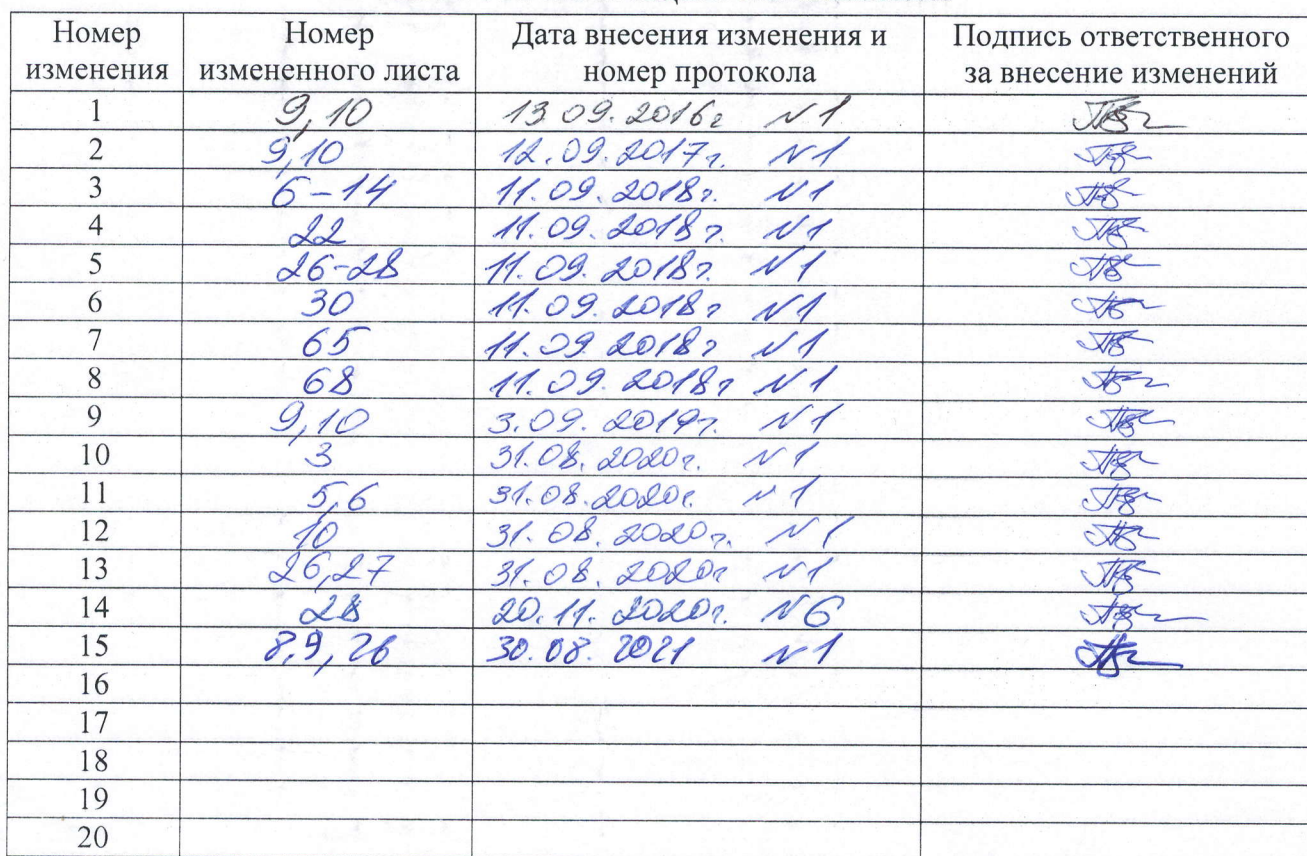 Номер изменения Номер измененного листа Дата внесения изменения и номер протокола Подпись ответственного за внесение изменений
1 9,10 13.09.2016г N1
2 9,10 12.09.2017г. N1
3 6-14 11.09.2018г. N1
4 22 11.09.2018г N1
5 26-28 11.09.2018г. N1
6 30 11.09.2018г N1
7 65 11.09.2018г N1
8 68 11.09.2018г N1
9 9,10 3.09.2019г. N1
10 3 31.08.2020г. N1
11 5,6 31.08.2020г. N1
12 10 31.08.2020г. N1
13 26,27 31.08.2020г N1
14 28 20.11.2020г. N6
15 8,9,26 30.08.2021 N1
16
17
18
19
20